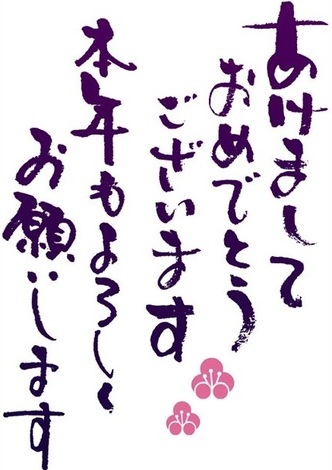 あけまして
おめでとう
ございます
本年もよろしく
お願いします